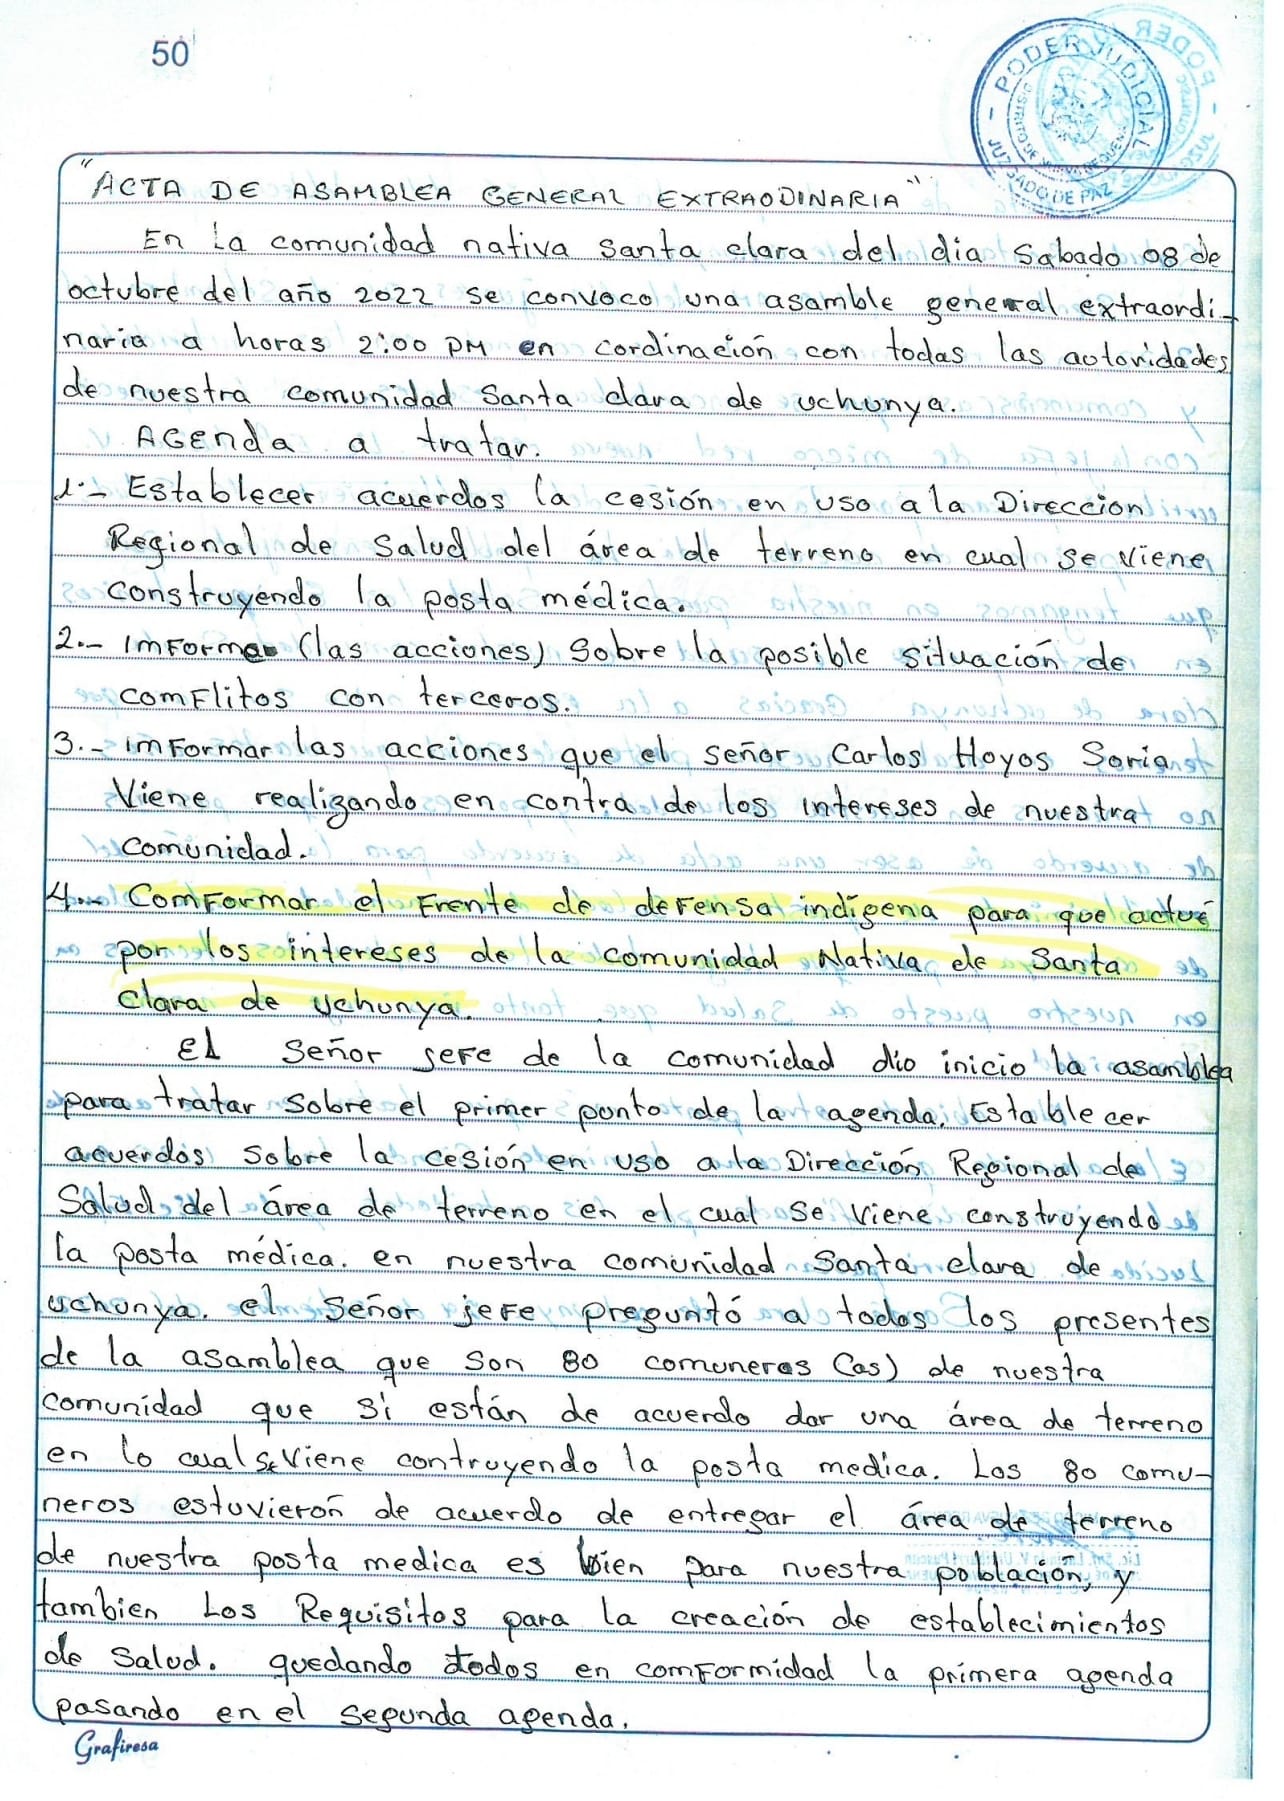 50
PODER JUDICIAL
JUZGADO DE PAZ
"ACTA DE ASAMBLEA GENERAL EXTRAODINARIA"
En La comunidad nativa Santa clara del dia Sabado 08 de
octubre del año 2022 se convoco una asamble general extraordi-
naria a horas 2:00 PM en cordinación con todas las autoridades
de nuestra comunidad Santa clara de uchunya.
AGEnda a tratar.
1.- Establecer acuerdos la cesión en uso a la Direccion
Regional de Salud del área de terreno en cual se viene
construyendo la posta médica.
2.- Imforma (las acciones) Sobre la posible situación de
comflitos con terceros.
3.- imformar las acciones que el señor Carlos Hoyos Soria
Viene realizando en contra de los intereses de nuestra
comunidad.
4.- Comformar el Frente de defensa indígena para que actué
por los intereses de la comunidad Nativa de Santa
Clara de uchunya.
El Señor jefe de la comunidad dio inicio la asamblea
para tratar sobre el primer punto de la agenda. Establecer
acuerdos sobre la cesión en uso a la Dirección Regional de
Salud del área de terreno en el cual se viene construyendo
la posta médica. en nuestra comunidad Santa clara de
uchunya. el Señor jefe preguntó a todos los presentes
de la asamblea que son 80 comuneros (as) de nuestra
comunidad que si están de acuerdo dar una área de terreno
en lo cual se viene contruyendo la posta medica. Los 80 comu-
neros estuvierón de acuerdo de entregar el área de terreno
de nuestra posta medica es bien para nuestra población, y
tambien Los Requisitos para la creación de establecimientos
de Salud. quedando todos en comformidad la primera agenda
pasando en el segunda agenda.
Grafiresa